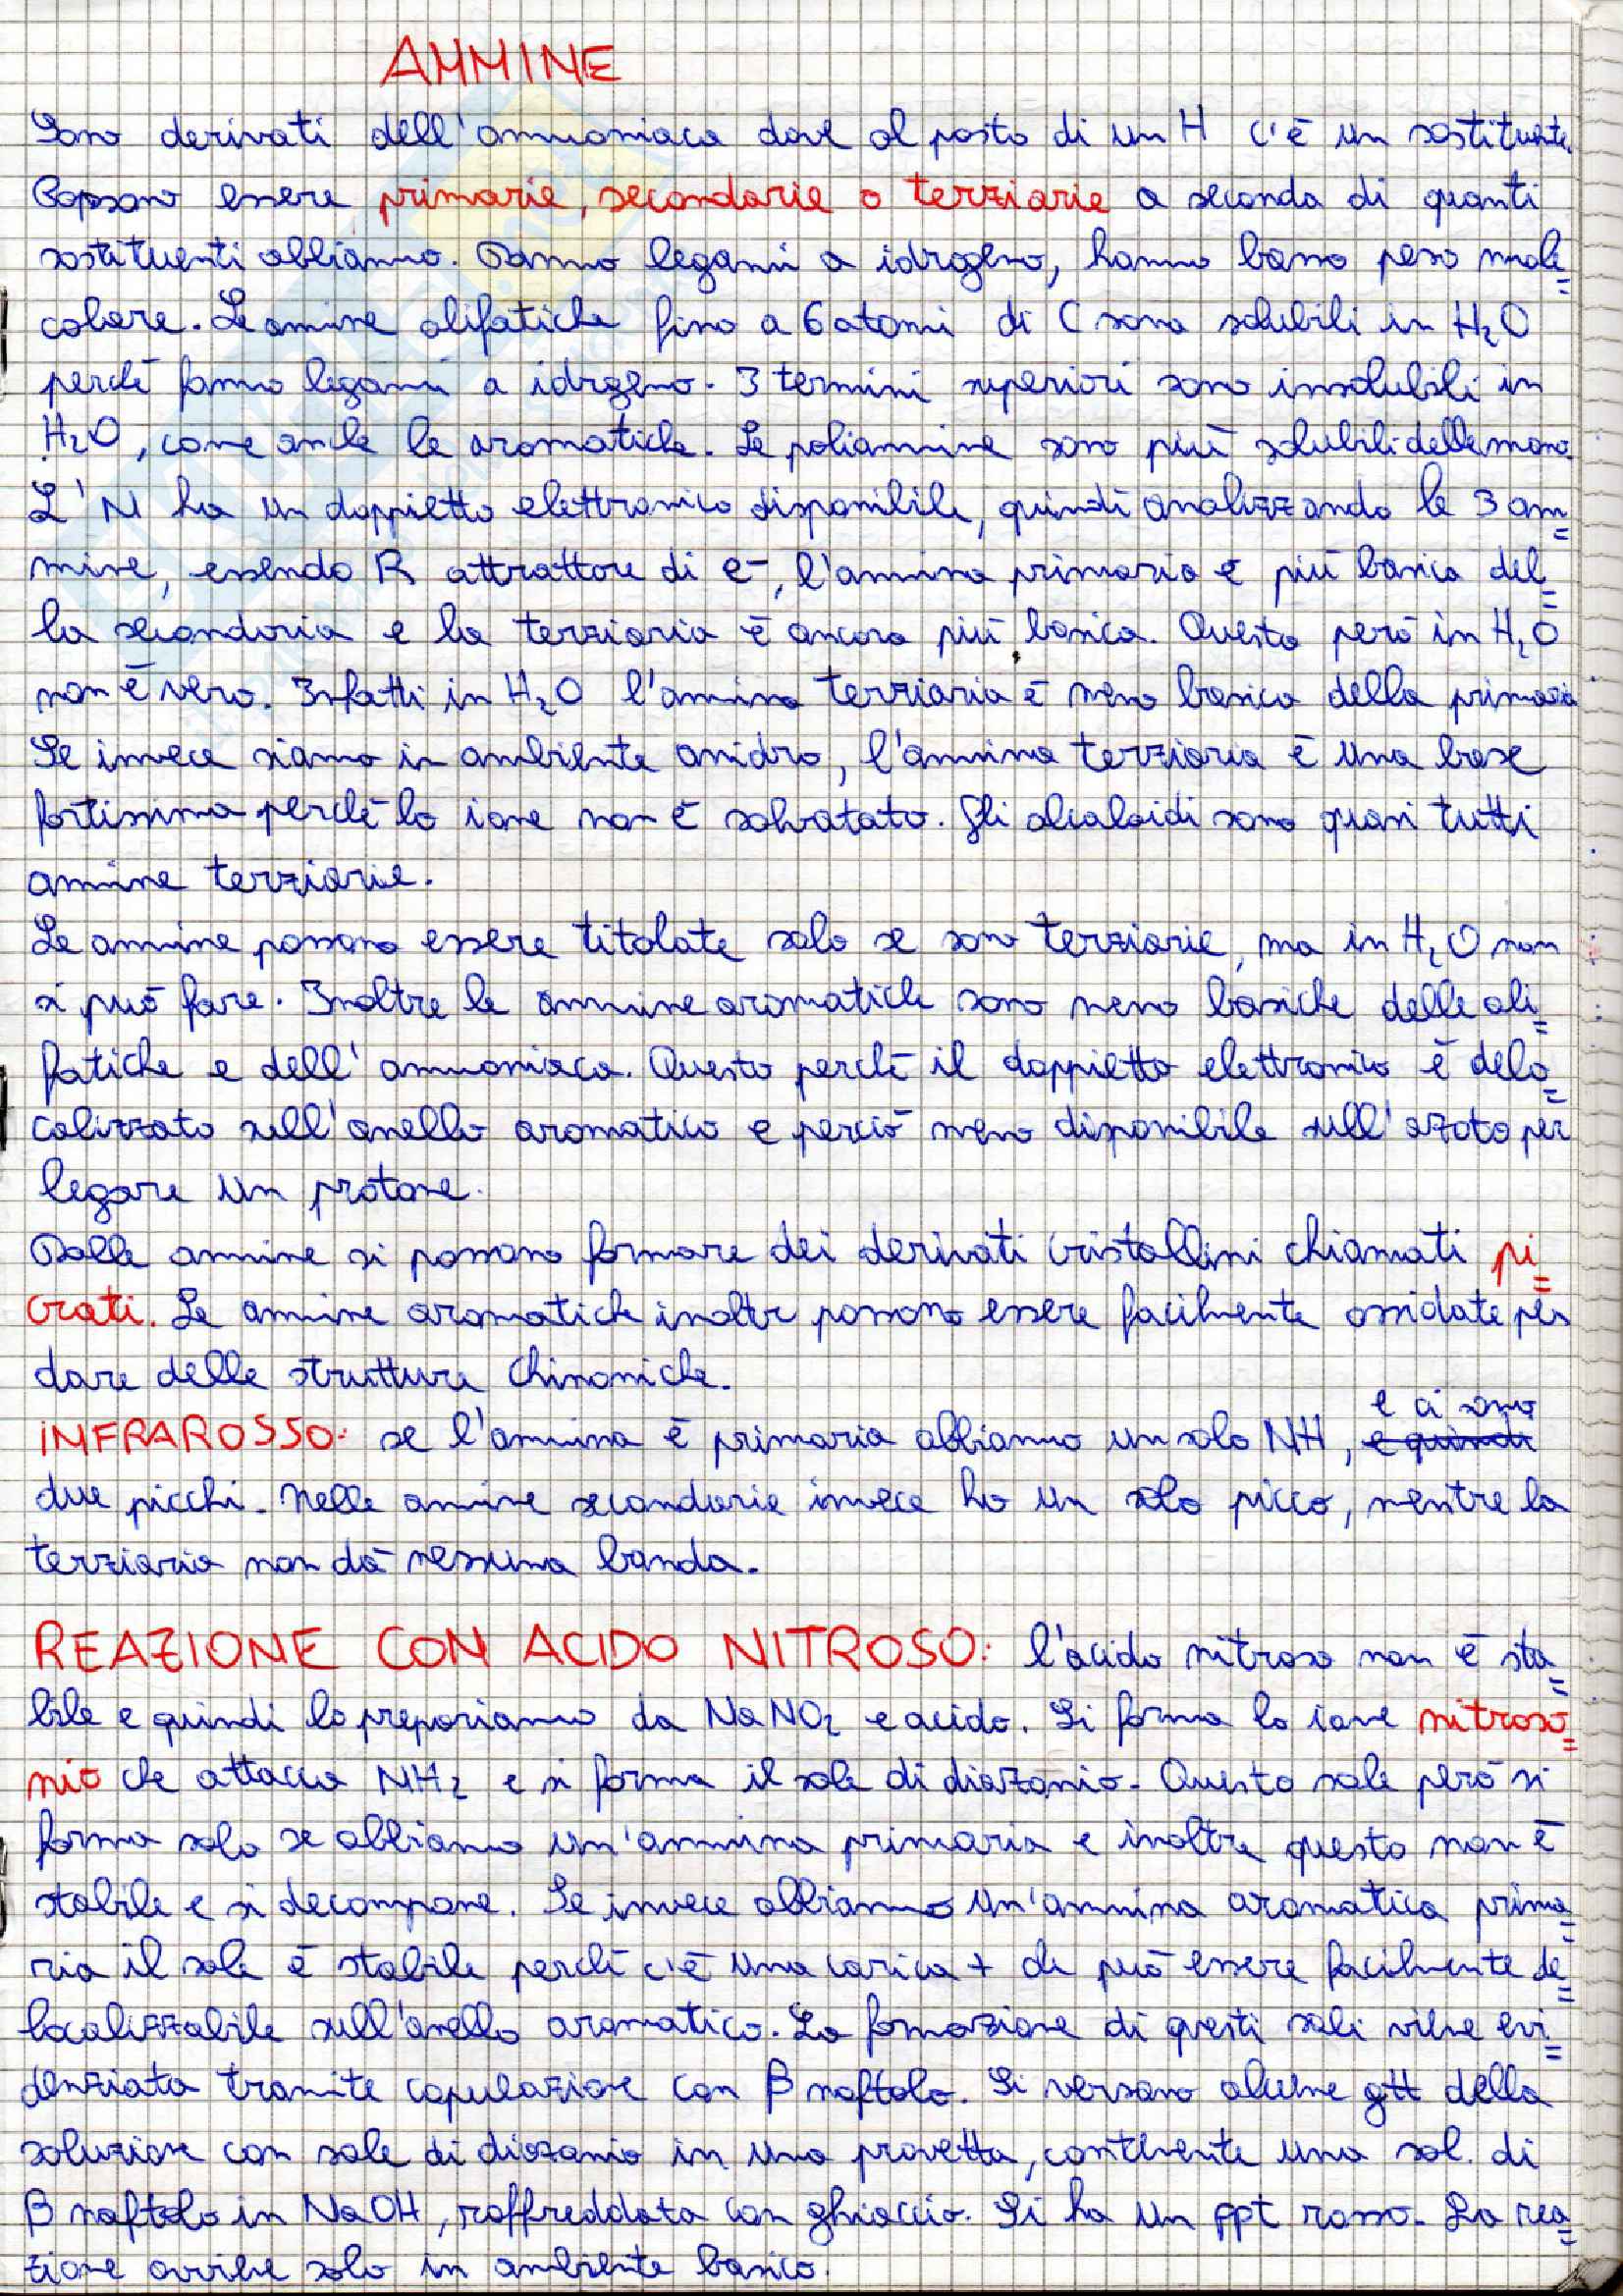 AMMINE
Sono derivati dell'ammoniaca dove al posto di un H c'è un sostituente.
Possono essere primarie, secondarie o terziarie a seconda di quanti
sostituenti abbiamo. Danno legami a idrogeno, hanno basso peso mole=
colare. Le amine alifatiche fino a 6 atomi di C sono solubili in H₂O
perchè fanno legami a idrogeno. I termini superiori sono insolubili in
H₂O, come anche le aromatiche. Le poliammine sono più solubili delle mono.
L'N ha un doppietto elettronico disponibile, quindi analizzando le 3 am=
mine, essendo R attrattore di e⁻, l'ammina primaria è più basica del=
la secondaria e la terziaria è ancora più basica. Questo però in H₂O
non è vero. Infatti in H₂O l'amina terziaria è meno basica della primaria
Se invece siamo in ambiente anidro, l'ammina terziaria è una base
fortissima perchè lo ione non è solvatato. Gli alcaloidi sono quasi tutti
amine terziarie.
Le ammine possono essere titolate solo se sono terziarie, ma in H₂O non
si può fare. Inoltre le ammine aromatiche sono meno basiche delle ali=
fatiche e dell'ammoniaca. Questo perchè il doppietto elettronico è delo=
calizzato sull'anello aromatico e perciò meno disponibile sull'azoto per
legare un protone.
Dalle ammine si possono formare dei derivati cristallini chiamati pi=
crati. Le amine aromatiche inoltre possono essere facilmente ossidate per
dare delle strutture chinoniche.
e ci sono
INFRAROSSO: se l'ammina è primaria abbiamo un solo NH, e quindi
due picchi. Nelle amine secondarie invece ho un solo picco, mentre la
terziaria non dà nessuna banda.
REAZIONE CON ACIDO NITROSO: l'acido nitroso non è sta=
bile e quindi lo prepariamo da NaNO₂ e acido. Si forma lo ione nitroso=
nio che attacca NH₂ e si forma il sale di diazonio. Questo sale però si
forma solo se abbiamo un'ammina primaria e inoltre questo non è
stabile e si decompone. Se invece abbiamo un'ammina aromatica prima=
ria il sale è stabile perchè c'è una carica + che può essere facilmente de=
localizzabile sull'anello aromatico. La formazione di questi sali viene evi=
denziata tramite copulazione con β naftolo. Si versano alcune gtt della
soluzione con sale di diazonio in una provetta, contenente una sol. di
β naftolo in NaOH, raffreddata con ghiaccio. Si ha un ppt rosso. La rea=
zione avviene solo in ambiente basico.